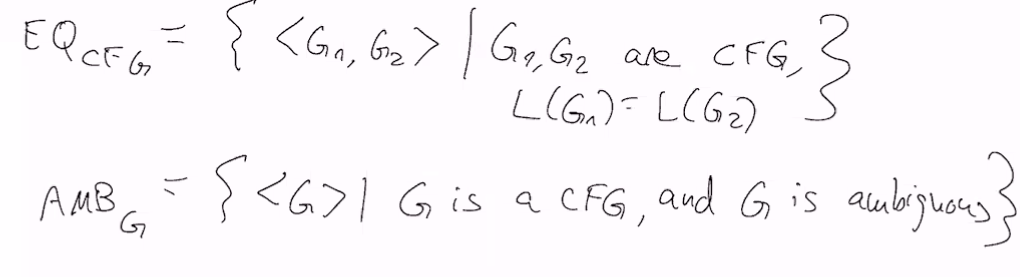 EQ_CFG = { <G₁, G₂> | G₁, G₂ are CFG,
L(G₁) = L(G₂) }
AMB_G = { <G> | G is a CFG, and G is ambiguous }